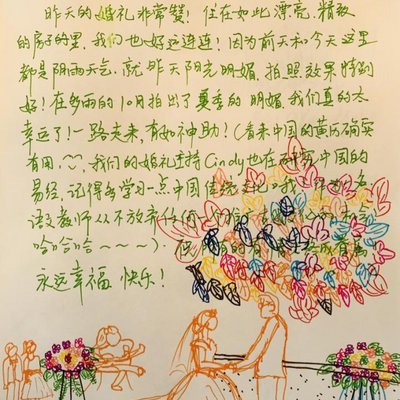 昨天的婚礼非常赞！住在如此漂亮,精致
的房子的里,我们也好运连连！因为前天和今天这里
都是阴雨天气,就昨天阳光明媚,拍照效果特别
好！在多雨的10月拍出了夏季的明媚,我们真的太
幸运了！一路走来,有如神助！(看来中国的黄历确实
有用,我们的婚礼主持Cindy也在研究中国的
易经,记得多学习一点中国传统文化哦
语文教师从不放弃任何一个
哈哈哈哈～～～～).
永远幸福,快乐！